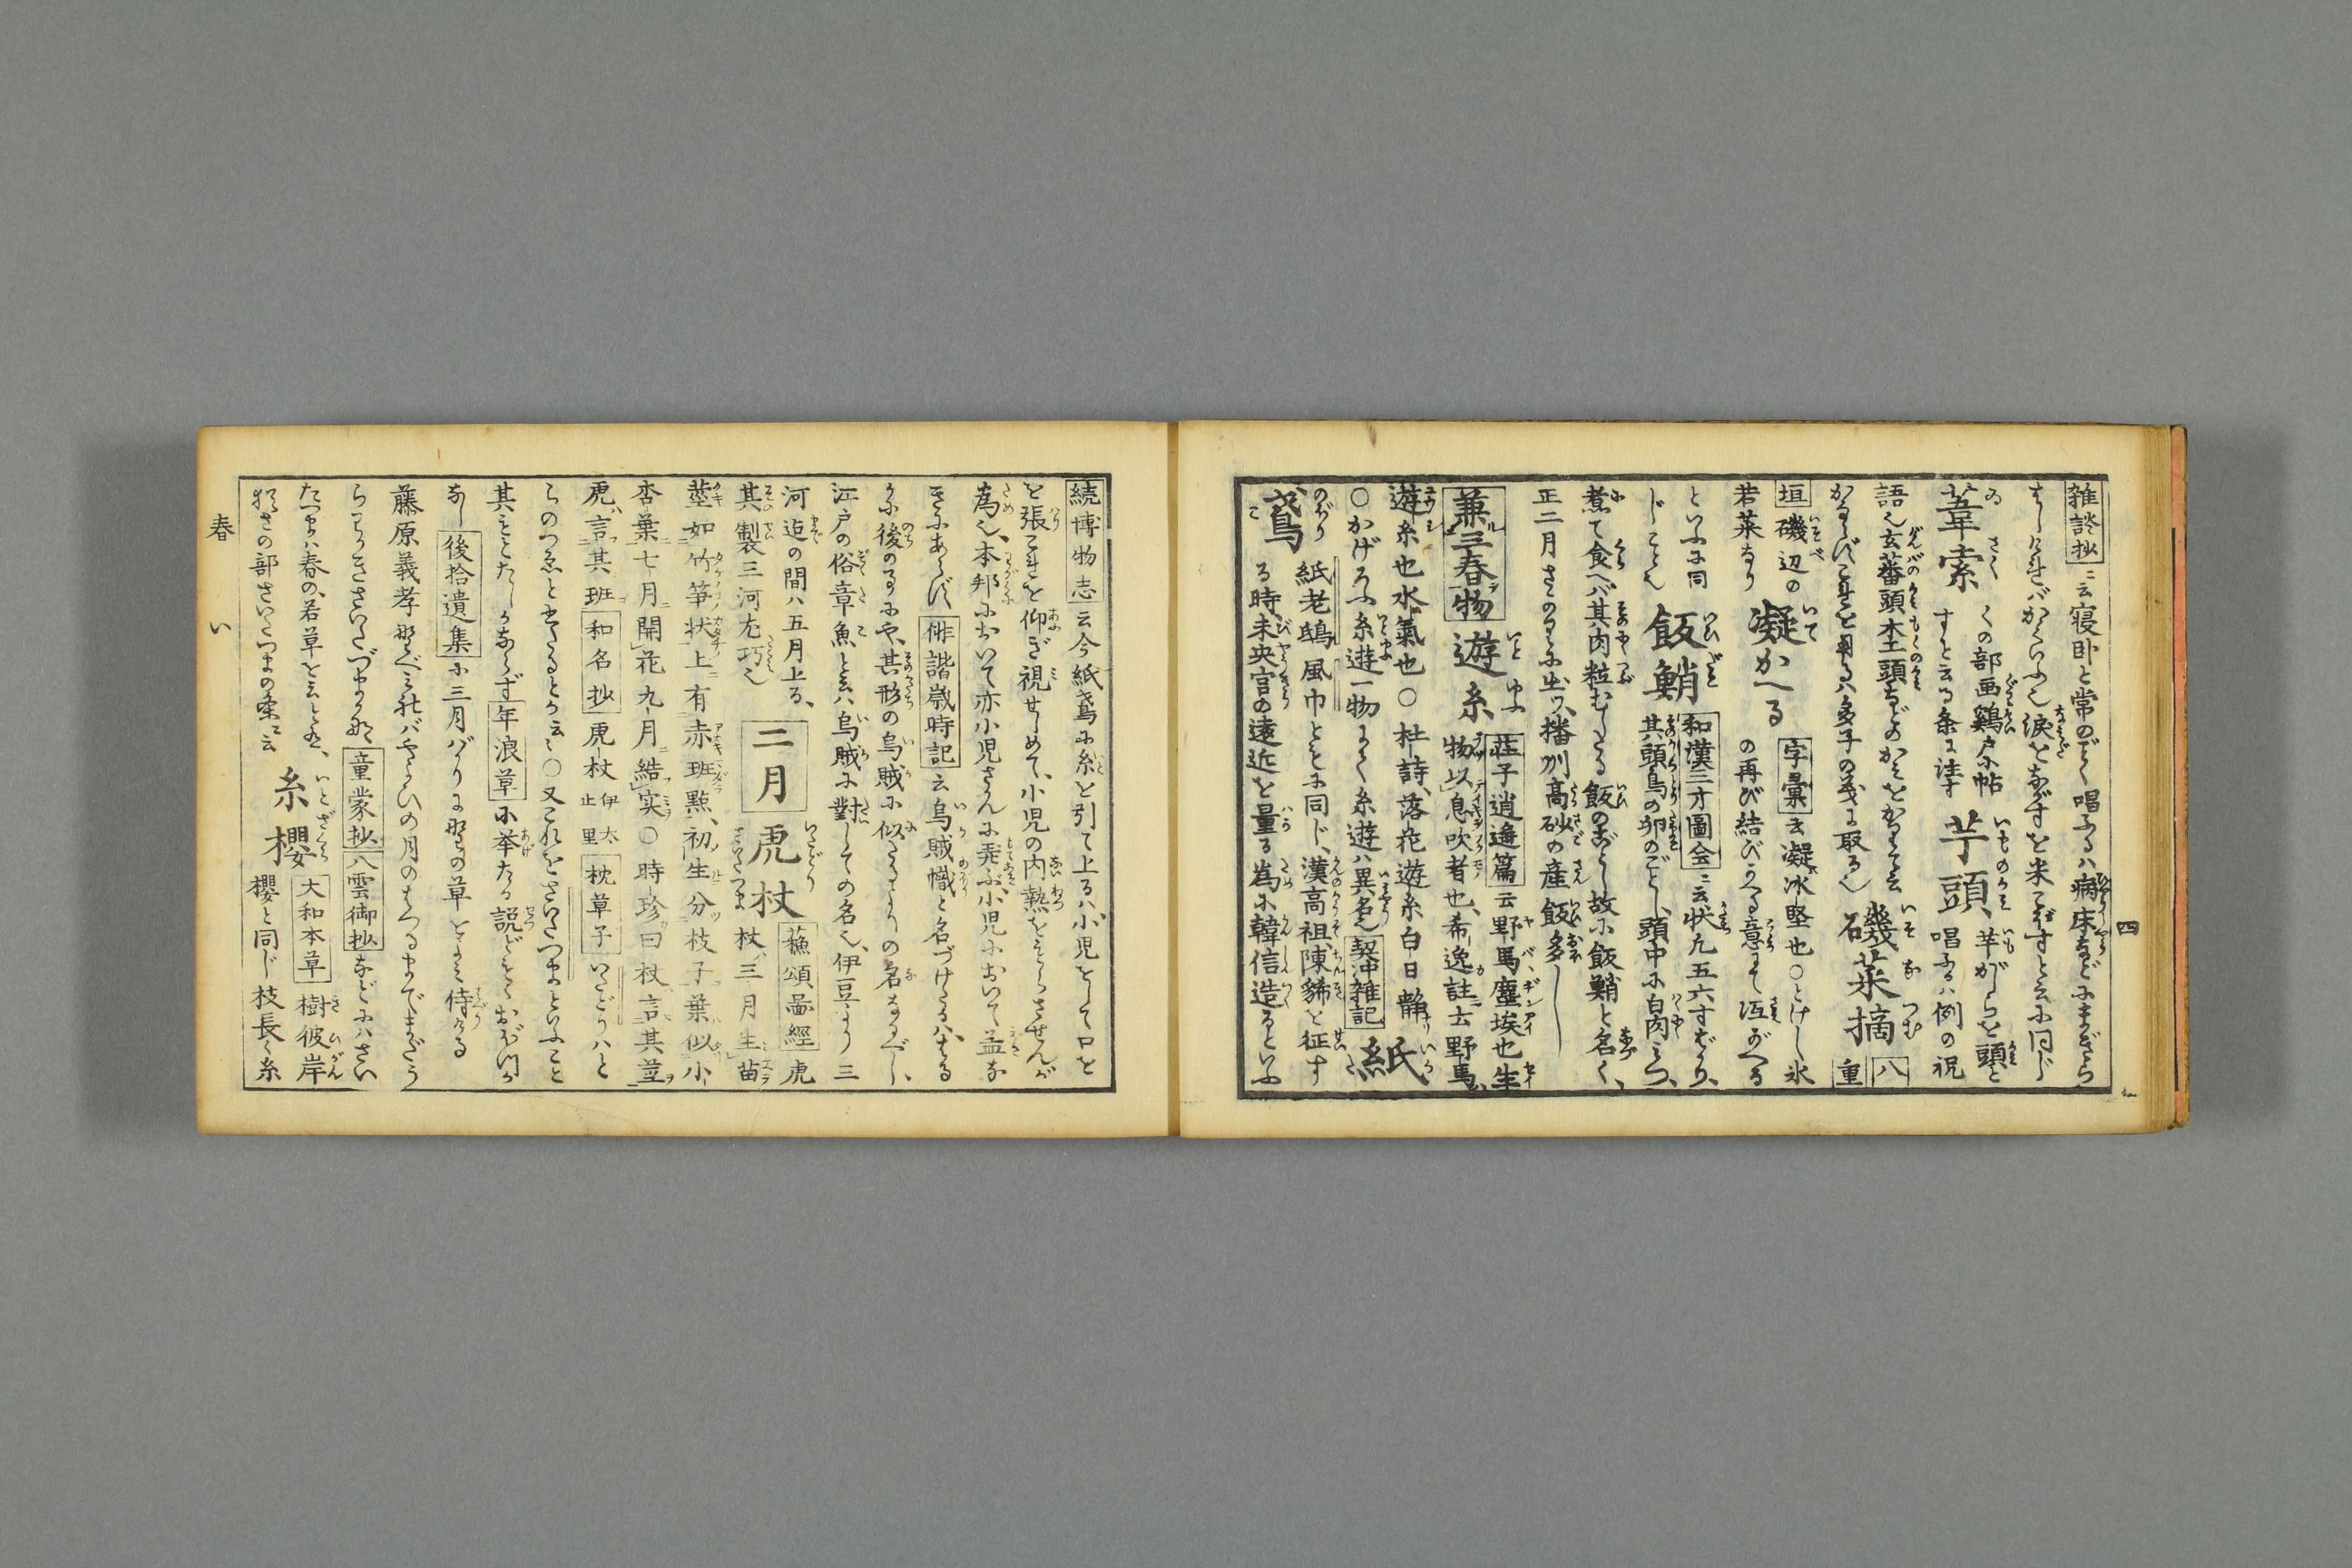 四
雑談抄ニ云寝卧と常のごとく唱ふるハ病床などにまぎらハ
涙を米こぼすと云に同じ
葦索 さくの部画鶏户帖
すと云る条に注す
芋頭 芋がらを頭と
唱ふるハ例の祝
語也玄蕃頭木工頭などのかみをかしらと云
これを用るハ多子の義に取る也 磯菜摘 八
重
垣 磯辺の
若菜なり
凝かへる 字彙云凝冰堅也○とけし氷
の再び結びかへる意にて冱かへる
といふに同
じこと也
飯鮹 和漢三才圖会ニ云状九五六寸ばかり、
其頭鳥の卵のごとし、頭中に白肉みつ、
煮て食へバ其肉粒むしたる飯のごとし故に飯鮹と名く、
正二月さかりに出ツ、播刕高砂の産飯多し
兼三春物 遊糸 荘子逍遥篇云野馬塵埃也生
物以息吹者也、希逸註云野馬
遊糸也水氣也○杜詩、落花遊糸白日静
○かげろふ糸遊一物にて糸遊ハ異名也契沖雑記
紙
鳶 紙老鴟風巾ともに同じ、漢高祖、陳豨を征す
る時、未央宮の遠近を量る為に韓信造るといふ
続博物志云今紙鳶に糸を引て上るハ小児をして口を
張これを仰ぎ視せしめて、小児の内熱をもらさせんが
為也、本邦において亦小児さかんに弄ぶ、小児において益な
きにあらず 俳諧歳時記云烏賊幟と名づけたるハはる
かに後の事にや、其形の烏賊に似たるよりの名なるべし、
江戸の俗章魚と云ハ烏賊に對しての名也、伊豆より三
河迠の間ハ五月上る、
其製三河尤巧也
二月 虎杖 蘓頌圖經虎
杖、三月生苗
莖如竹笋状上有赤班㸃、初生分枝子葉似小
杏葉七月開花九月結実○時珍曰杖言其莖
虎言其班 和名抄 虎杖 伊太
止里 枕草子 いたどりハと
らのつゑと書たるとか云々○又これをさいたづまといふこと
其こと
年浪草に挙たる説ども
後拾遺集に三月バかりに野の草をよみ侍りける
藤原義孝 野べみれバやよひの月のはつるまでまだう
らわかきさいたづまかな 童蒙抄 八雲御抄などにハさい
たづまハ春の若草を云と云、
さの部さいたづまの条ニ云
糸櫻 大和本草 樹彼岸
櫻と同じ枝長く糸
春 い